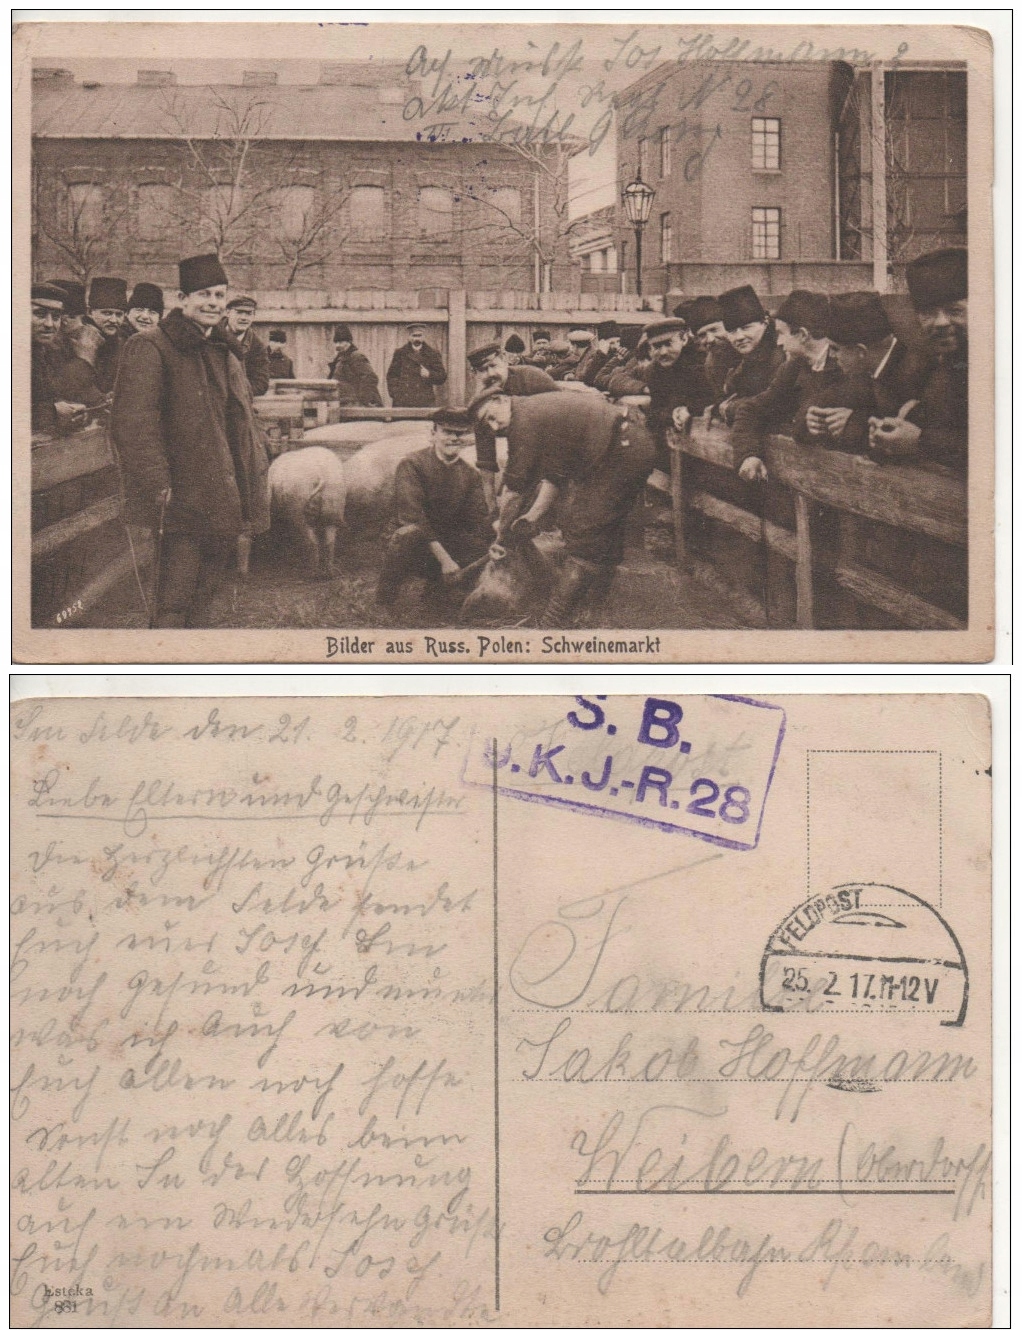 Jos Hoffmann
Inf Regt N 28
Batl 9 Komp
69952
Bilder aus Russ. Polen: Schweinemarkt
Im Felde den 21. 2. 1917.
Liebe Eltern und Geschwister
Die Herzlichsten Grüße
aus dem Felde sendet
Euch euer Josef Bin
noch Gesund und munter
was ich Auch von
Euch Allen noch hoffe
sonst noch Alles beim
Alten In der Hoffnung
auf ein Wiedersehn Grüßt
Euch nochmals Josef.
Gruß An Alle Verwandte
Esteka
831
S. B.
K. J.-R. 28
FELDPOST
25. 2 17. 11-12 V
Familie
Jakob Hoffmann
Weibern (Oberdorf)
Brohltalbahn